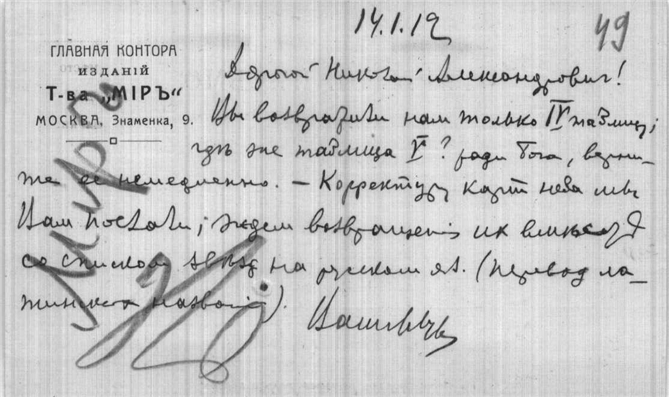 14.1.12
49
ГЛАВНАЯ КОНТОРА
ИЗДАНІЙ
Т-ва „МІРЪ“
МОСКВА, Знаменка, 9.
Миръ
Дорогой Николай Александрович!
Вы возвратили нам только IV таблицу;
гдѣ же таблица V? ради Бога, верни-
те ее немедленно. — Корректуру карт неба мы
Вам послали; ждем возвращенія их вмѣстѣ
со списком звѣзд на русском яз. (перевод ла-
тинских названій).
Ваш